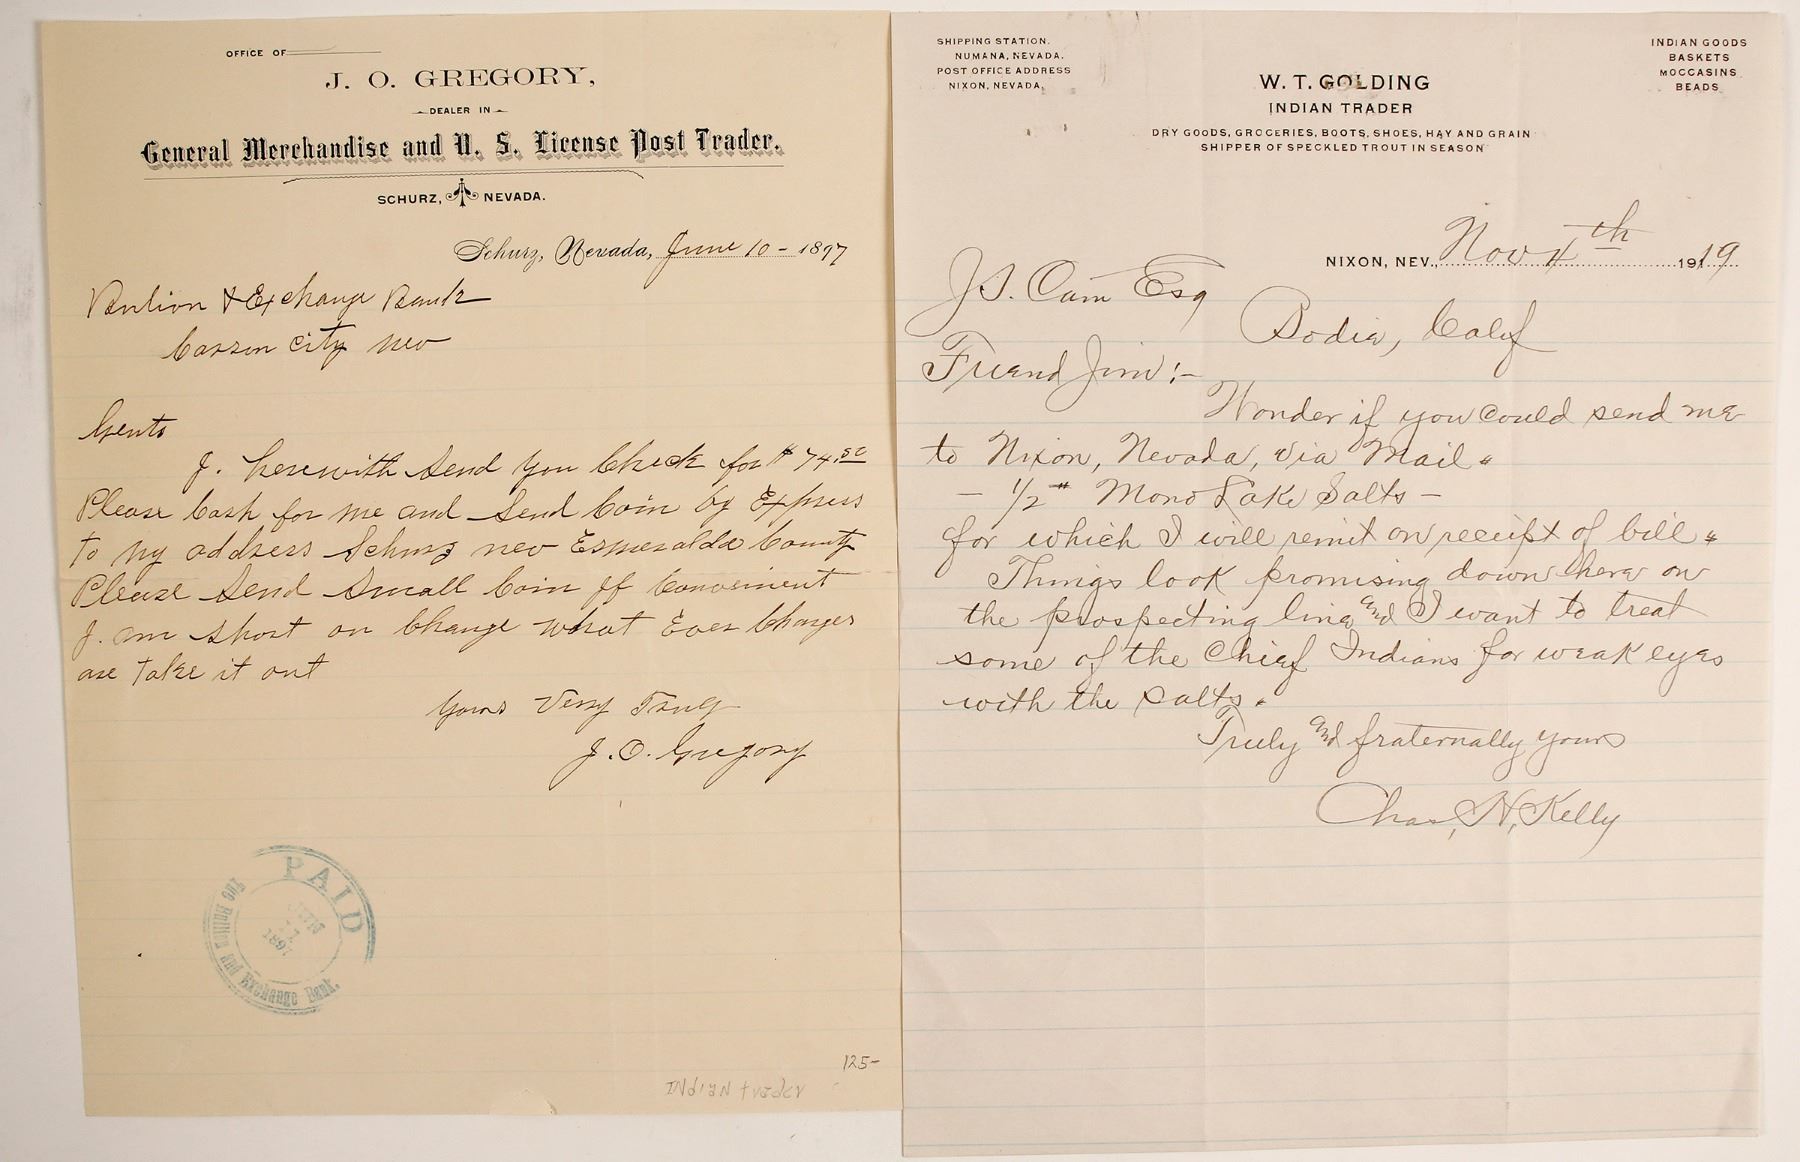 OFFICE OF
J. O. GREGORY,
DEALER IN
General Merchandise and U. S. License Post Trader.
SCHURZ, NEVADA.
Schurz, Nevada, June 10 - 1897
Bulion & Exchange Bank
Carson City Nev
Gents
I. herewith Send you Check for $ 74.50
Please Cash for me and Send Coin by Express
to my address Schurz Nev Esmeralda County
Please Send Small Coin If Convenient
I. am Short on Change what Ever Charges
are take it out
Yours Very Truly
J. O. Gregory
PAID
The Bullion and Exchange Bank.
JUN
1897
125-
INdiaN trader
SHIPPING STATION.
NUMANA, NEVADA.
POST OFFICE ADDRESS
NIXON, NEVADA.
W. T. GOLDING
INDIAN TRADER
DRY GOODS, GROCERIES, BOOTS, SHOES, HAY AND GRAIN
SHIPPER OF SPECKLED TROUT IN SEASON
INDIAN GOODS
BASKETS
MOCCASINS
BEADS
NIXON, NEV., Nov 4th 1919
J S. Cain Esq
Bodie, Calif
Friend Jim :-
Wonder if you could send me
to Nixon, Nevada, via Mail.
- 1/2 # Mono Lake Salts -
for which I will remit on receipt of bill.
Things look promising down here on
the prospecting line and I want to treat
some of the Chief Indians for weak eyes
with the salts.
Truly and fraternally yours
Chas. H. Kelly